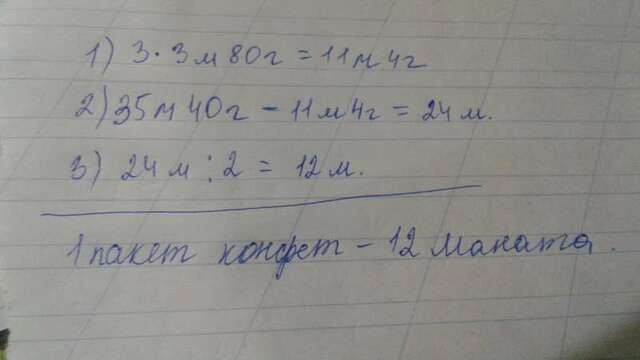 1) 3·3м 80г = 11м 4г
2) 35м 40г - 11м 4г = 24м.
3) 24м : 2 = 12м.
1 пакет конфет - 12 маната.